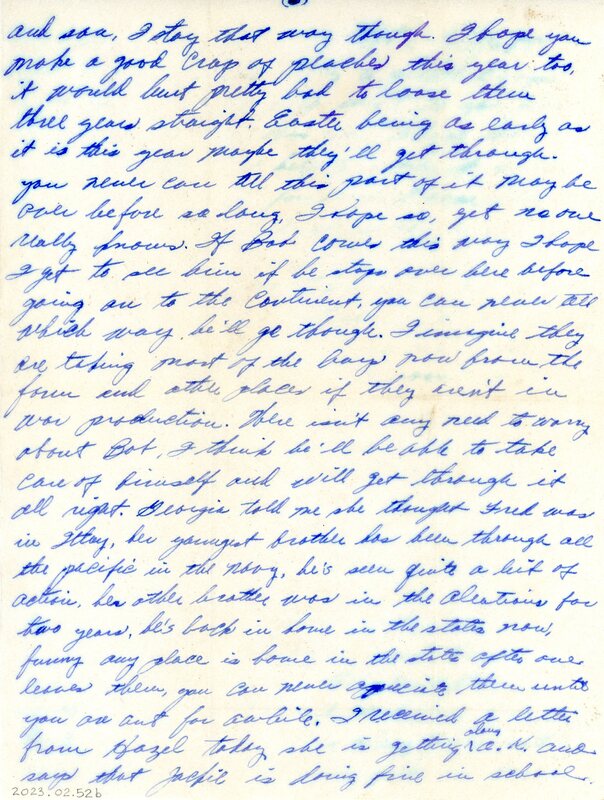 and soa, I stay that way though. I hope you
make a good crop of peaches this year too,
it would hurt pretty bad to loose them
three years straight. Easter being as early as
it is this year maybe they'll get through.
you never can tell this part of it may be
over before so long, I hope so, yet no one
really knows. If Bob comes this way I hope
I get to see him if he stops over here before
going on to the Continent, you can never tell
which way he'll go though. I imagine they
are taking most of the boys now from the
farm and other places if they aren't in
war production. There isn't any need to worry
about Bob, I think he'll be able to take
care of himself and will get through it
all right. Georgia told me she thought Fred was
in Italy, her youngest brother has been through all
the pacific in the navy, he's seen quite a bit of
action, her other brother was in the Aleutians for
two years, he's back in home in the states now,
funny any place is home in the states after one
leaves them, you can never apreciate them until
you are out for awhile. I received a letter
from Hazel today she is getting along o.K. and
says that Jackie is doing fine in school.
2023.02.52b